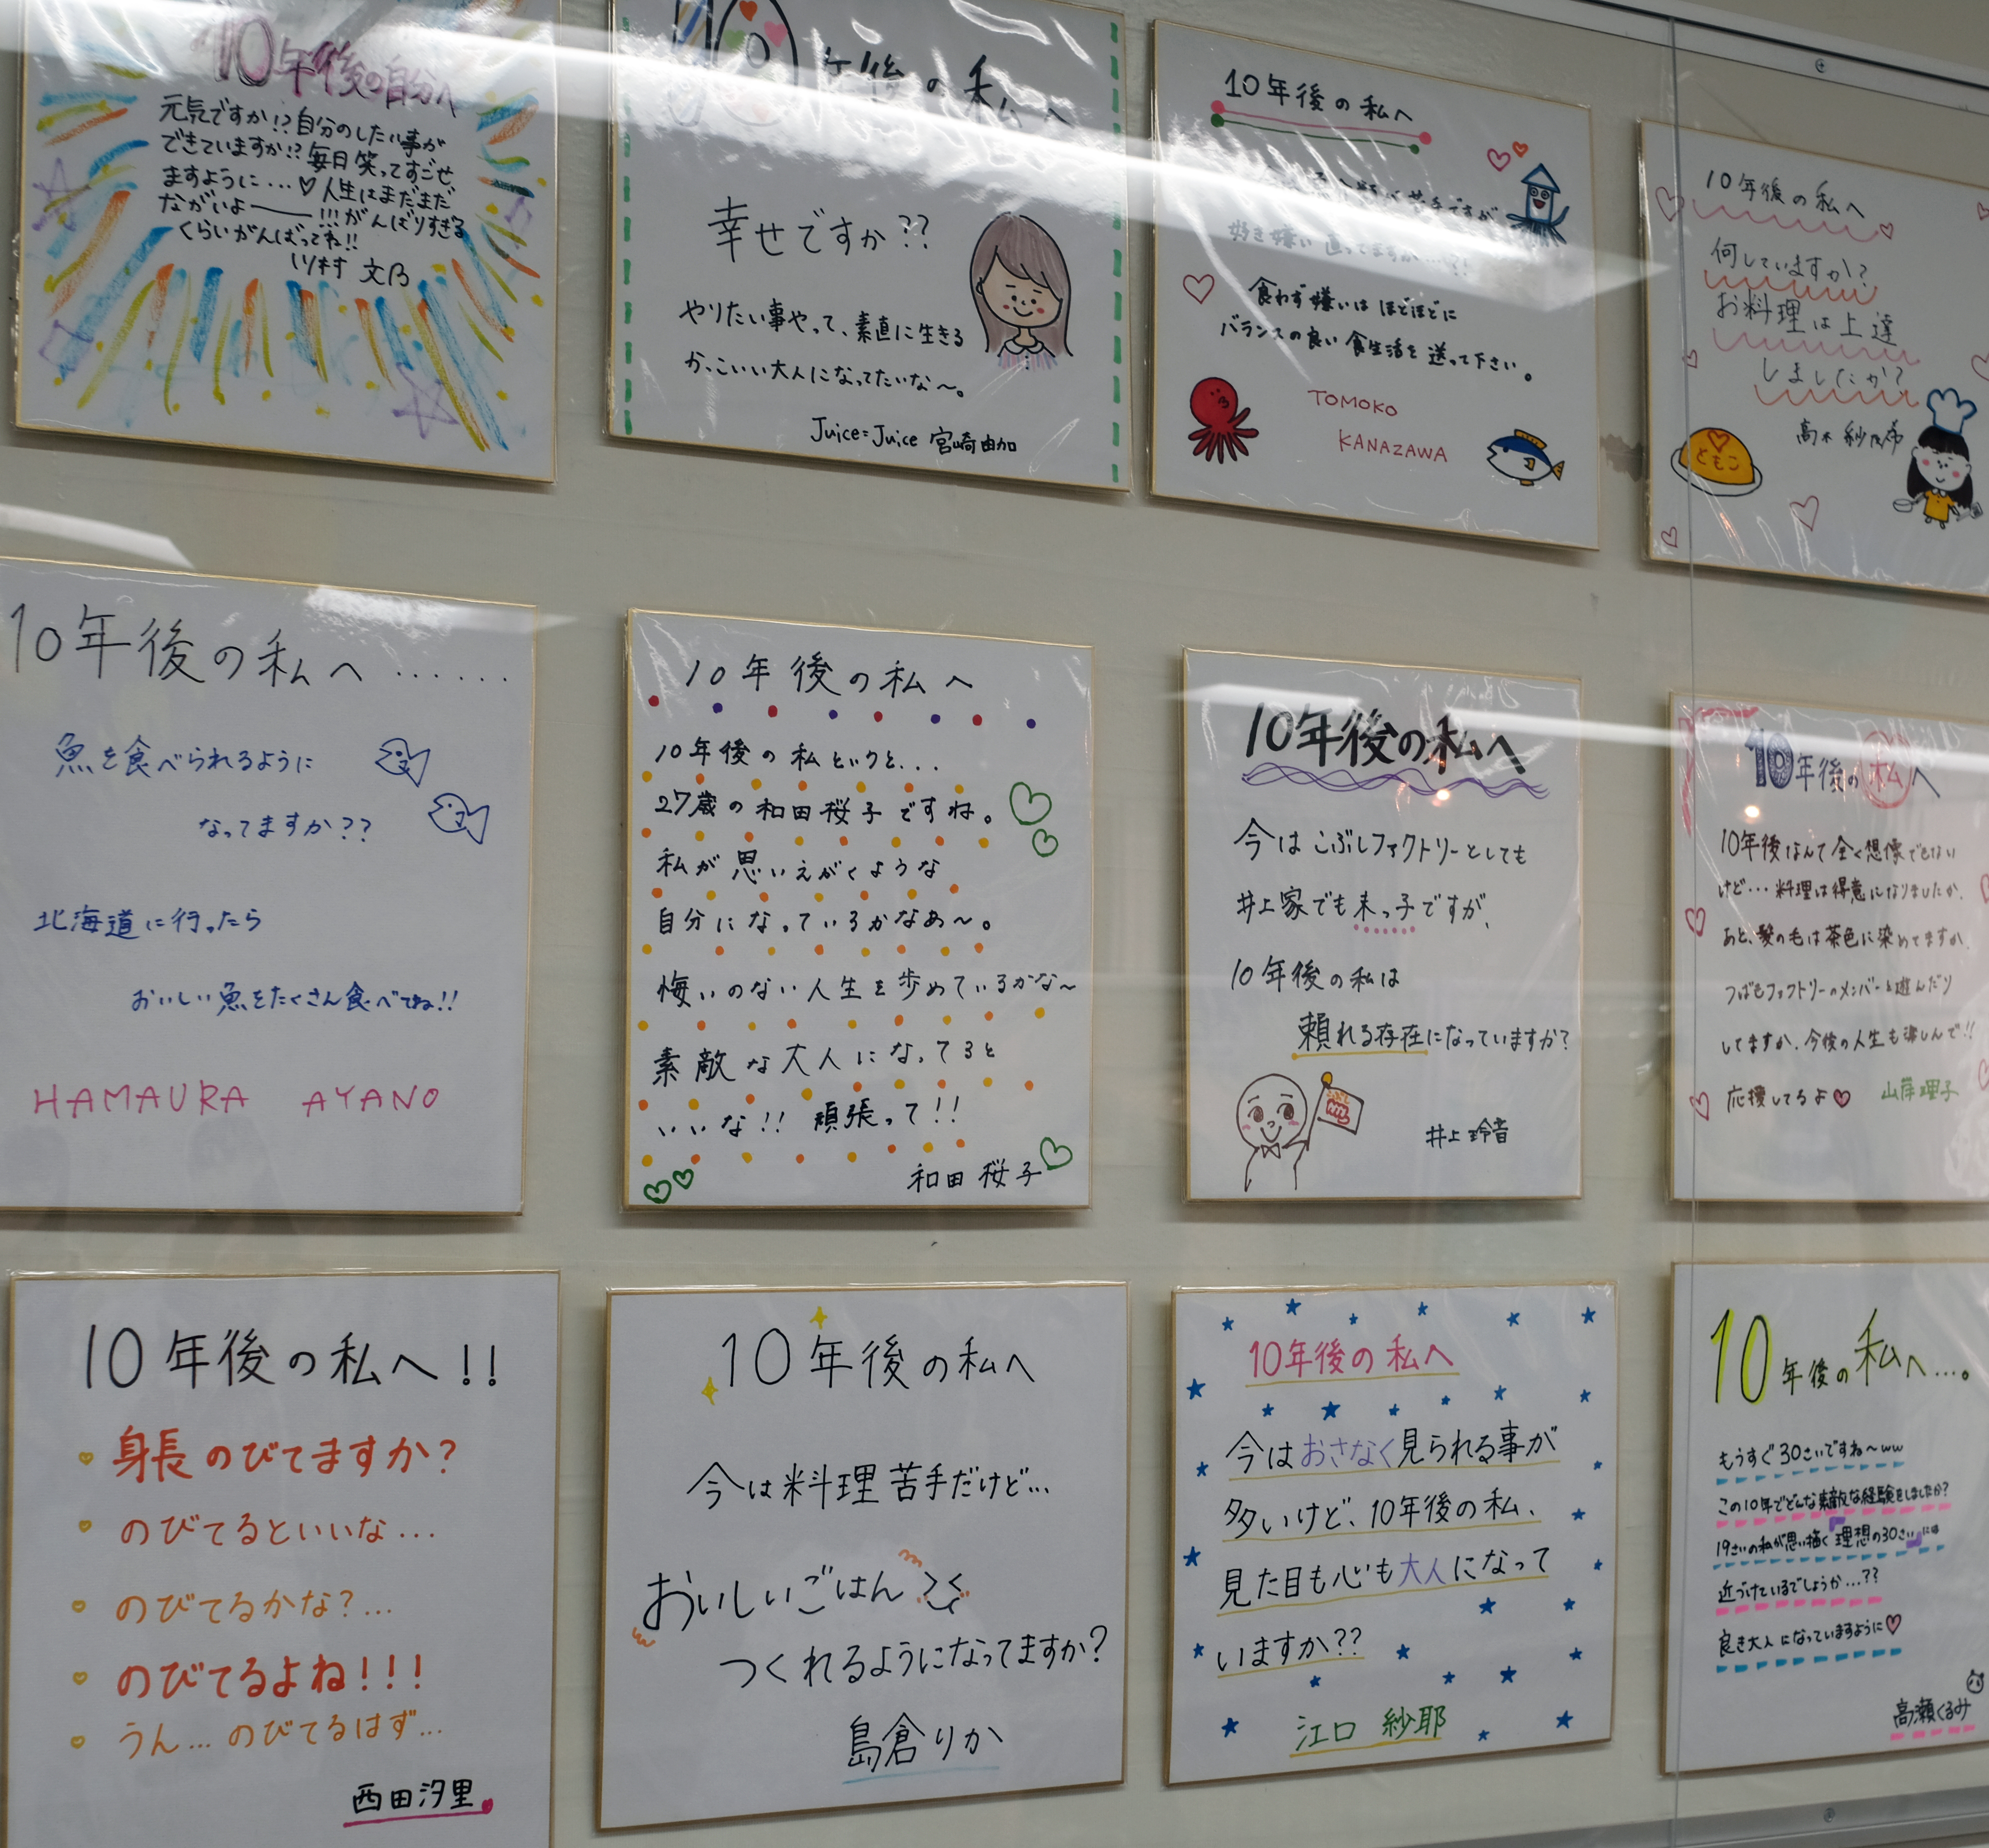 10年後の自分へ
元気ですか!?自分のしたい事が
できていますか!?毎日笑ってすごせ
ますように…♡人生はまだまだ
ながいよー!!!がんばりすぎる
くらいがんばってね!!
川村 文乃
10年後の私へ
幸せですか??
やりたい事やって、素直に生きる
かっこいい大人になってたいな〜。
Juice=Juice 宮崎由加
10年後の私へ
苦手ですが
好き嫌い直ってますか…?!
食わず嫌いはほどほどに
バランスの良い食生活を送って下さい。
TOMOKO
KANAZAWA
10年後の私へ
何していますか?
お料理は上達
しましたか?
高木紗友希
ともこ
10年後の私へ……
魚を食べられるように
なってますか??
北海道に行ったら
おいしい魚をたくさん食べてね!!
HAMAURA AYANO
10年後の私へ
10年後の私というと...
27歳の和田桜子ですね。
私が思いえがくような
自分になっているかなあ〜。
悔いのない人生を歩めているかな〜
素敵な大人になってると
いいな!! 頑張って!!
和田桜子
10年後の私へ
今はこぶしファクトリーとしても
井上家でも末っ子ですが、
10年後の私は
頼れる存在になっていますか?
井上玲音
10年後の私へ
10年後なんて全く想像できない
けど…料理は得意になりましたか。
あと、髪の毛は茶色に染めてますか。
つばきファクトリーのメンバーと遊んだり
してますか。今後の人生も楽しんで!!
応援してるよ♡ 山岸理子
10年後の私へ!!
身長のびてますか?
のびてるといいな...
のびてるかな?...
のびてるよね!!!
うん...のびてるはず...
西田汐里
10年後の私へ
今は料理苦手だけど...
おいしいごはん
つくれるようになってますか?
島倉りか
10年後の私へ
今はおさなく見られる事が
多いけど、10年後の私、
見た目も心も大人になって
いますか??
江口 紗耶
10年後の私へ...。
もうすぐ30さいですね〜ww
この10年でどんな素敵な経験をしましたか?
19さいの私が思い描く理想の30さいには
近づけているでしょうか...??
良き大人になっていますように♡
高瀬くるみ